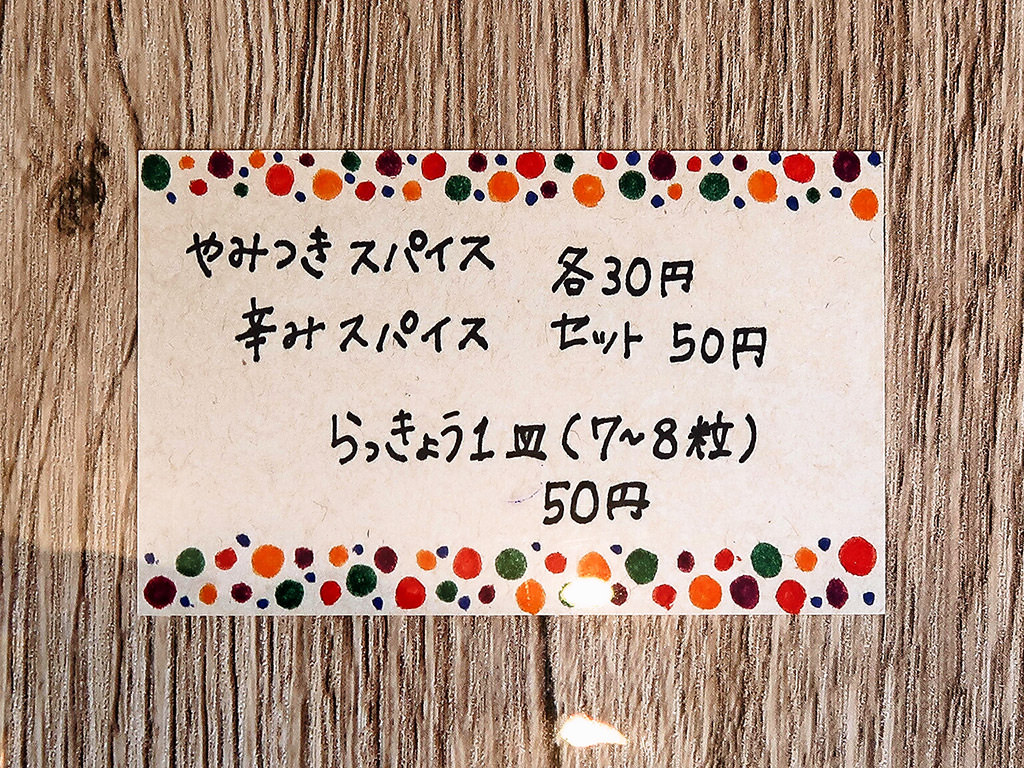 やみつきスパイス 各30円
辛みスパイス セット 50円
らっきょう1皿(7~8粒)
50円